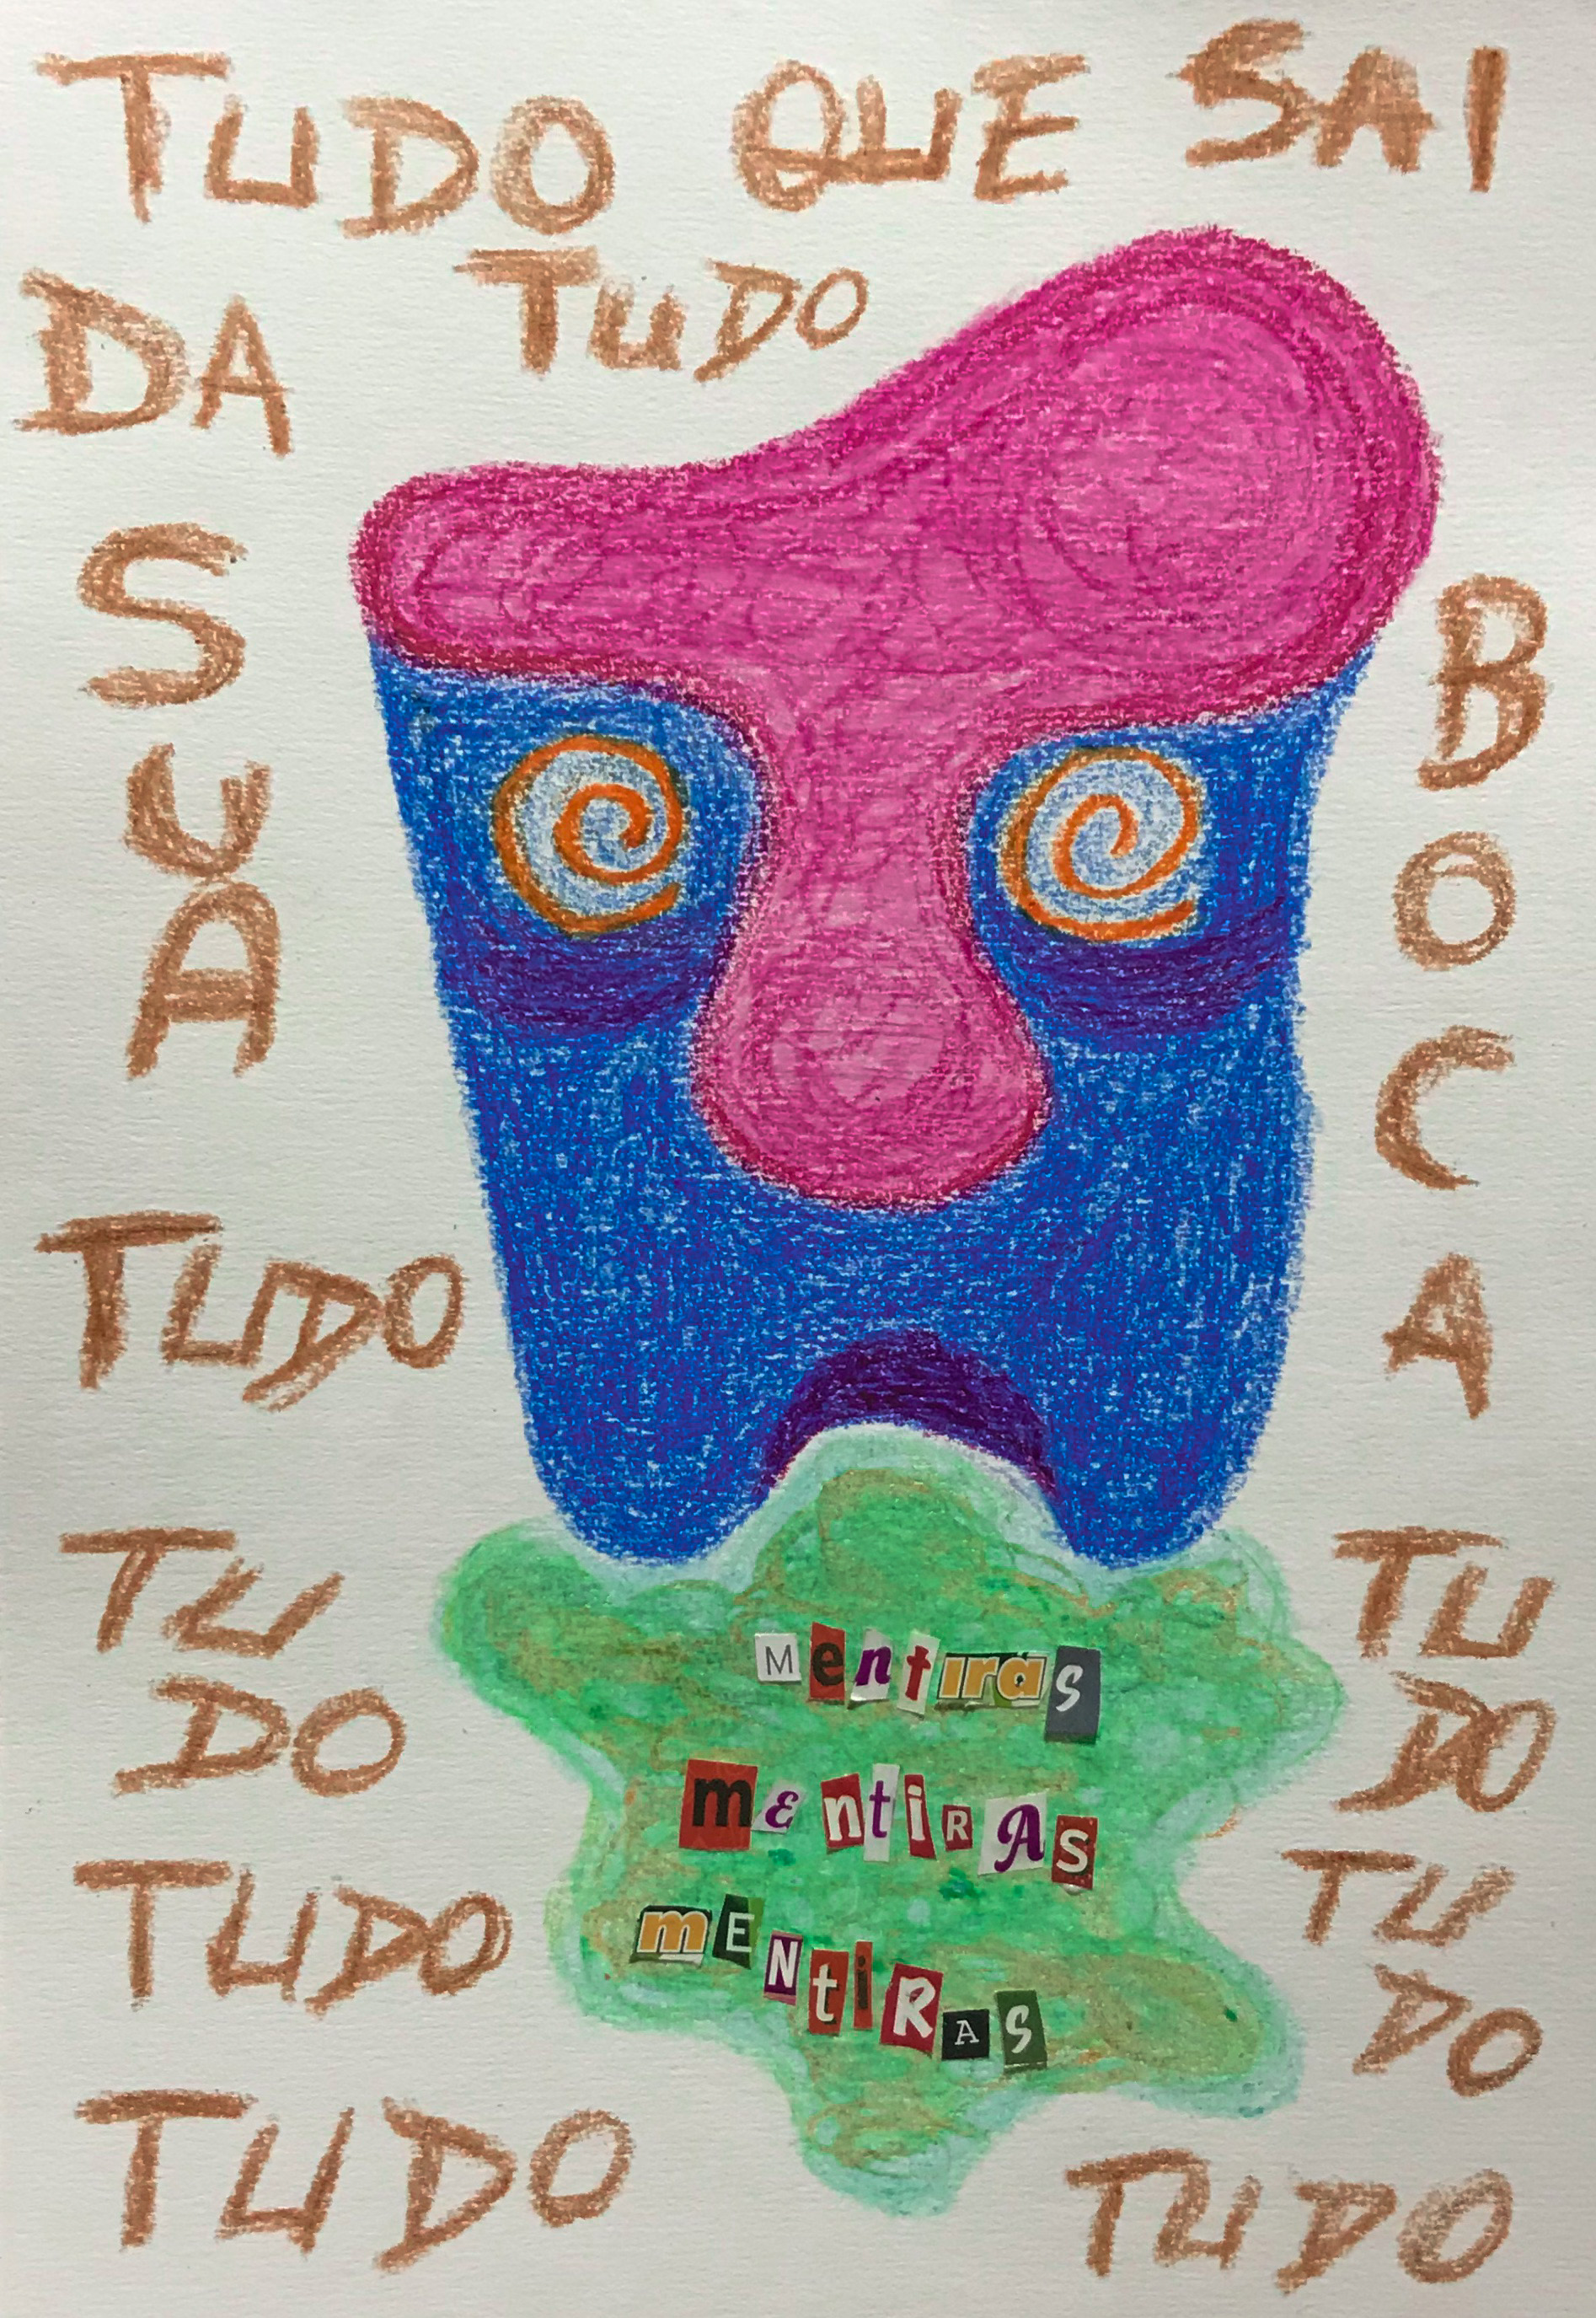 TUDO QUE SAI
DA
TUDO
SUA
BOCA
TUDO
TU
DO
TU
DO
TUDO
TU
DO
TUDO
TUDO
Mentiras
mentiRAS
mENtiRAS